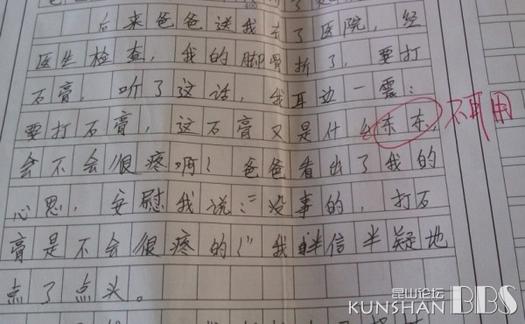 后来爸爸送我去了医院，经
医生检查，我的脚骨折了，要打
石膏，听了这话，我耳边一震：
要打石膏，这石膏又是什么东东，不可用
会不会很疼啊！爸爸看出了我的
心思，安慰我说：“没事的，打石
膏是不会很疼的！”我半信半疑地
点了点头。
昆山论坛
KUNSHAN BBS